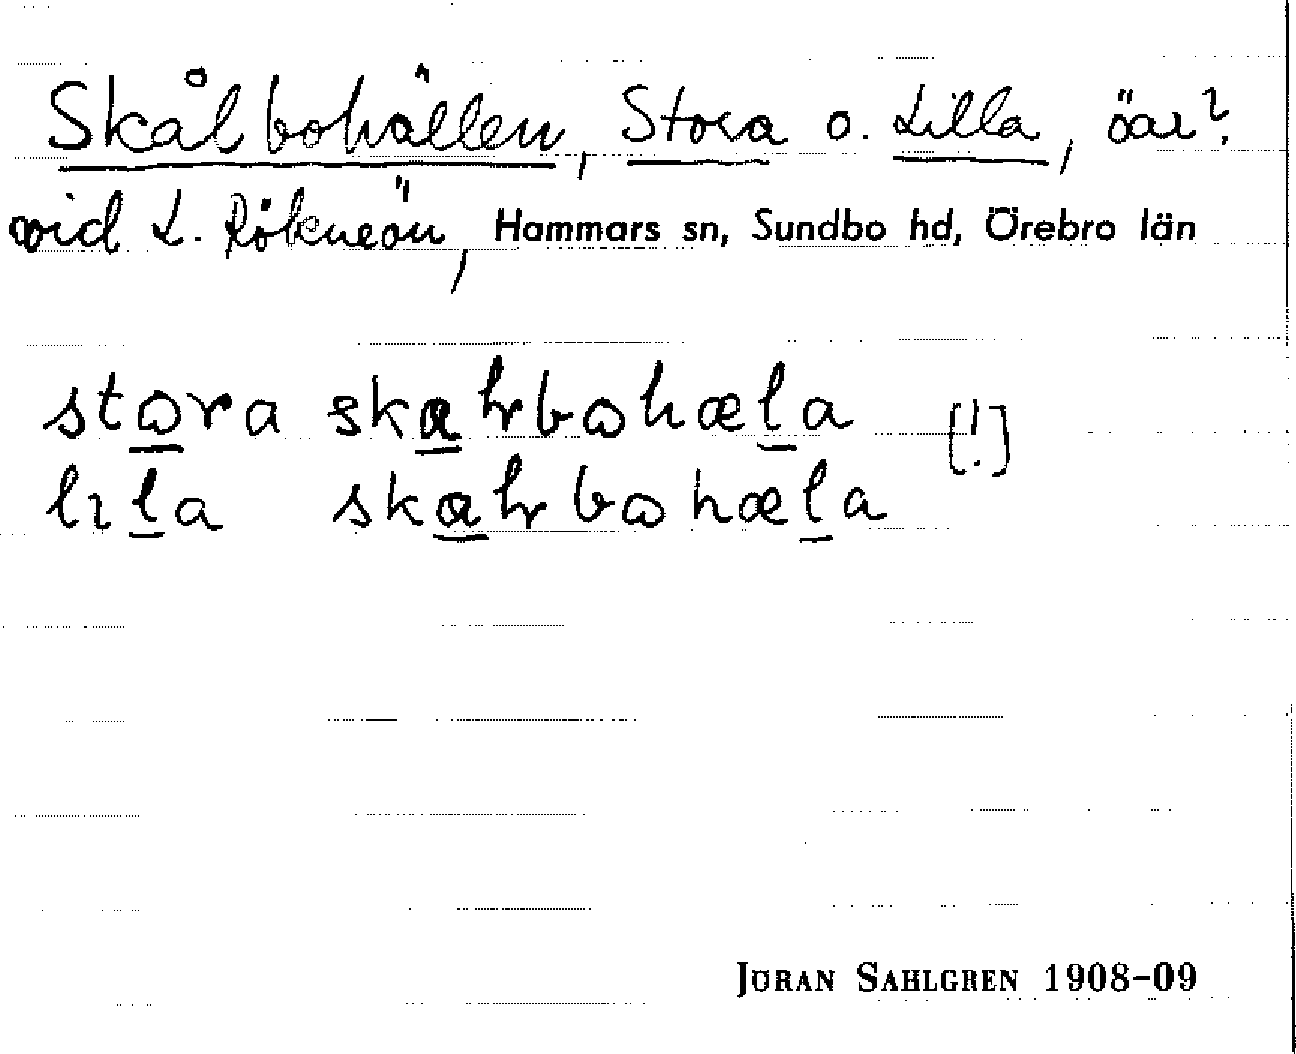 Skålbohällen, Stora o. Lilla, öar?
vid L. Rökneön, Hammars sn, Sundbo hd, Örebro län
stωra skɑłrbωhæla [!]
lıla skɑłrbωhæla
JÖRAN SAHLGREN 1908-09